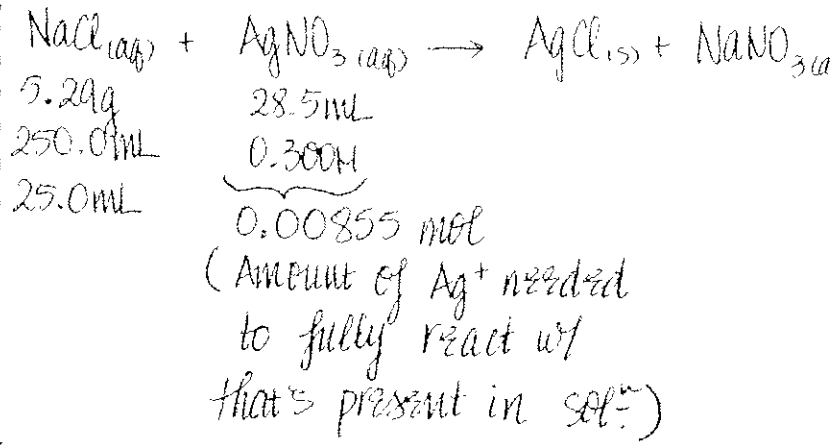 NaCl(aq) + AgNO3(aq) → AgCl(s) + NaNO3(a
5.29g 28.5mL
250.0mL 0.300M
25.0mL
0.00855 mol
(Amount of Ag+ needed
to fully react w/
that's present in solⁿ.)